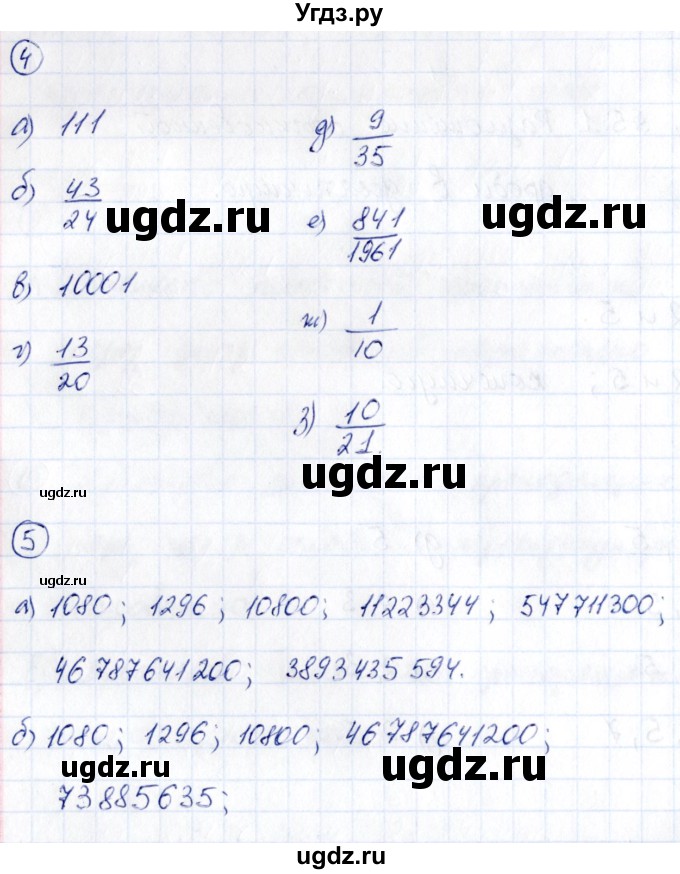 Угдз.ру
4
а) 111
б) 43/24
в) 10001
г) 13/20
д) 9/35
е) 841/1961
ж) 1/10
з) 10/21.
ugdz.ru
ugdz.ru
ugdz.ru
ugdz.ru
5
ugdz.ru
а) 1080; 1296; 10800; 11223344; 547711300;
46787641200; 3893435594.
б) 1080; 1296; 10800; 46787641200;
73885635;
ugdz.ru
ugdz.ru
ugdz.ru